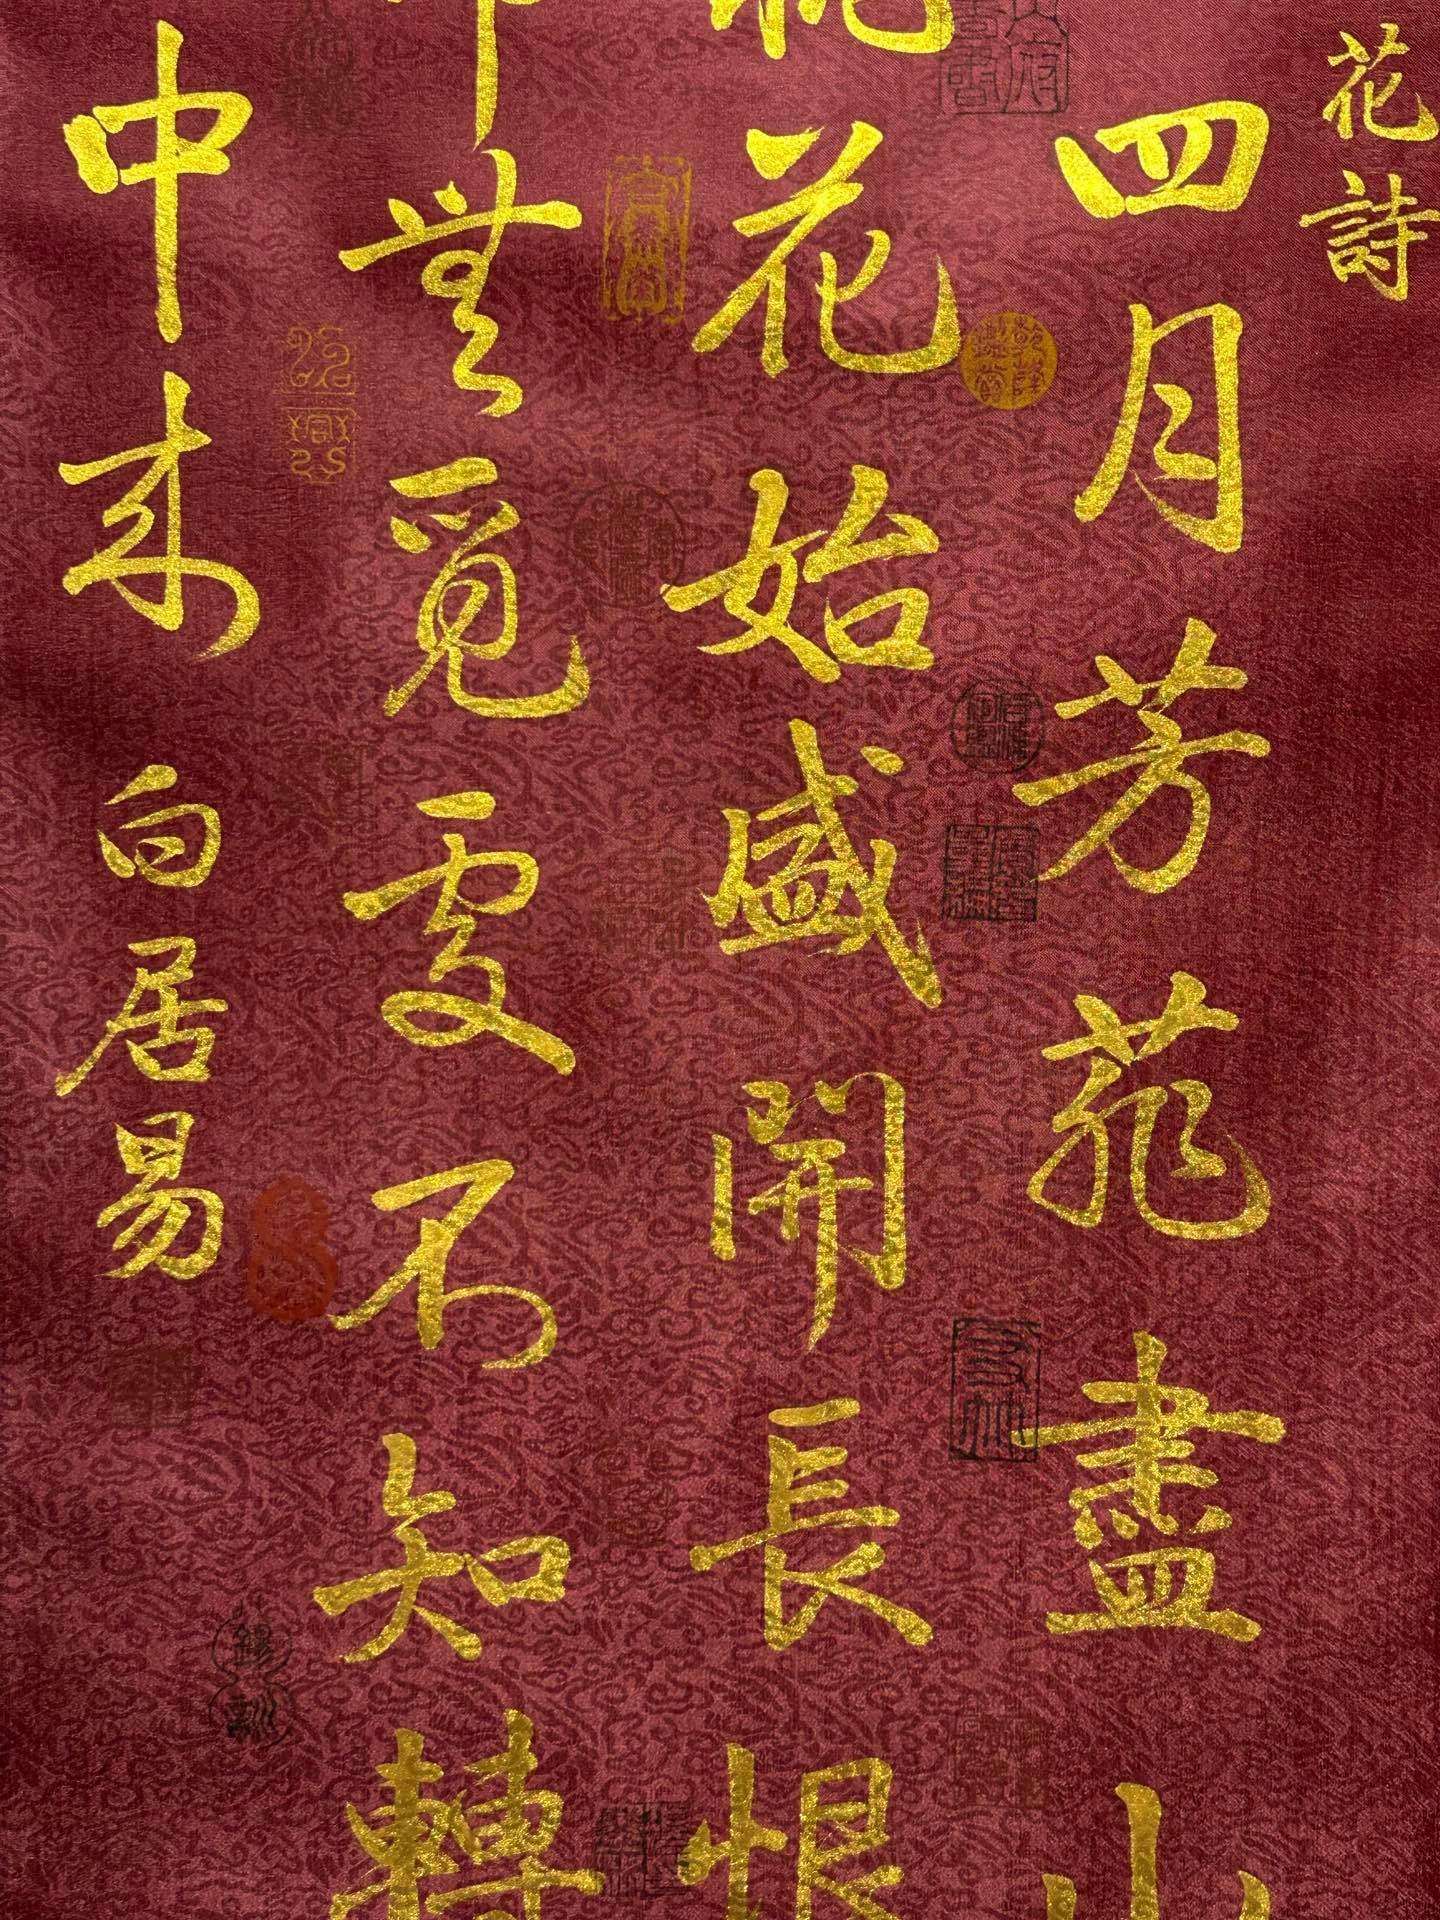 花詩
四月芳菲盡山
桃花始盛開長恨
無覓處不知轉
中来 白居易